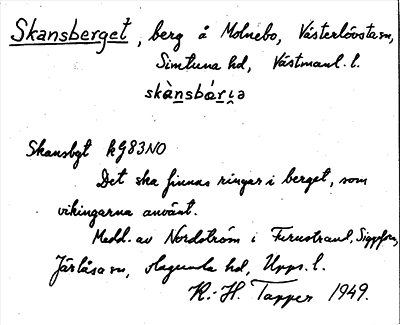 Skansberget, berg å Molnebo, Västerlövsta sn,
Simtuna hd, Västmanl. l.
skànsbár̯i̯ə
Skansbgt kg83NO
Det ska finnas ringar i berget, som
vikingarna använt.
Medd. av Nordström i Furustrand, Siggeforn,
Järlåsa sn, Hagunda hd, Upps. l.
K.-H. Tapper 1949.